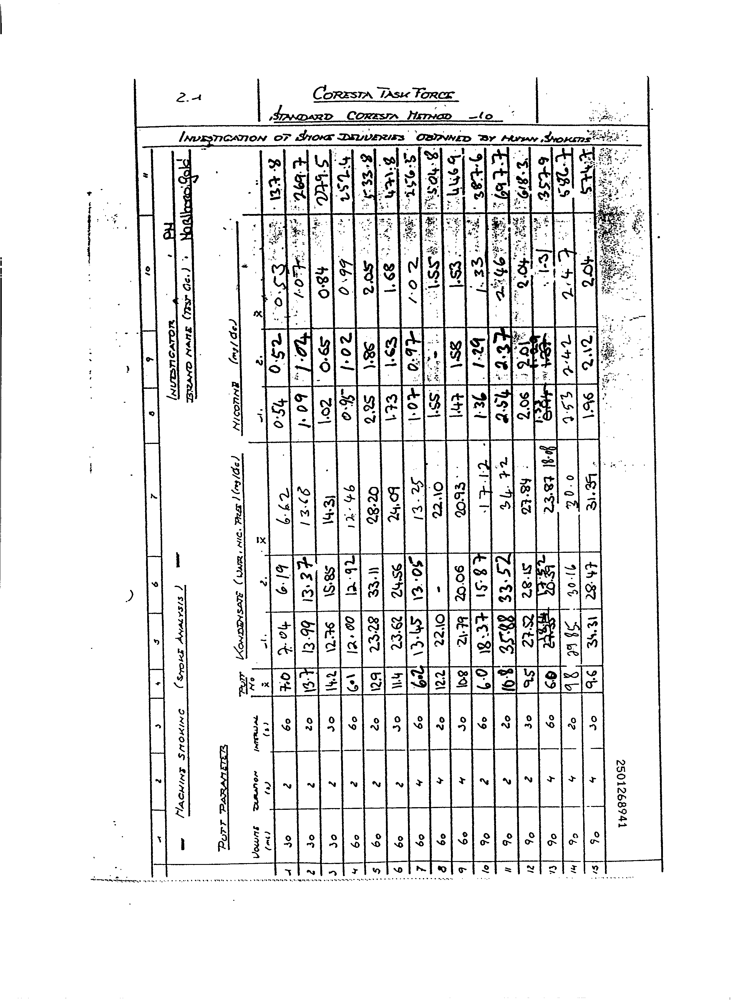 2.1
CORESTA TASK FORCE
STANDARD CORESTA METHOD -10
INVESTIGATION OF SMOKE DELIVERIES OBTAINED BY HUMAN SMOKERS
1 2 3 4 5 6 7 8 9 10 11
INVESTIGATOR : PM
BRAND NAME (TEST CIG.) : Marlboro Gold
— MACHINE SMOKING (SMOKE ANALYSIS) —
PUFF PARAMETER
PUFF No x̄
KONDENSATE (WATER, NIC. FREE) (mg/cig)
NICOTINE (mg/cig)
VOLUME (ml) DURATION (s) INTERVAL (s) 1. 2. x̄ 1. 2. x̄
1 30 2 60 7.0 7.04 6.19 6.62 0.54 0.52 0.53 137.8
2 30 2 20 13.7 13.99 13.37 13.68 1.09 1.04 1.07 269.7
3 30 2 30 14.2 12.76 15.85 14.31 1.02 0.65 0.84 279.5
4 60 2 60 6.1 12.00 12.92 12.46 0.95 1.02 0.99 252.4
5 60 2 20 12.9 23.28 33.11 28.20 2.25 1.86 2.05 533.8
6 60 2 30 11.4 23.62 24.56 24.09 1.73 1.63 1.68 471.8
7 60 4 60 6.2 13.45 13.05 13.25 1.07 0.97 1.02 256.5
8 60 4 20 12.2 22.10 - 22.10 1.55 - 1.55 504.8
9 60 4 30 10.8 21.79 20.06 20.93 1.47 1.58 1.53 446.9
10 90 2 60 6.0 18.37 15.87 17.12 1.36 1.29 1.33 387.6
11 90 2 20 10.8 35.88 33.52 34.72 2.54 2.37 2.46 697.7
12 90 2 30 9.5 27.52 28.15 27.84 2.06 2.01 2.04 618.3
13 90 4 60 6.0 20.39 17.52 23.87 18.08 1.33 1.29 1.31 357.9
14 90 4 20 9.8 29.85 30.16 30.0 2.53 2.42 2.47 586.7
15 90 4 30 9.6 34.31 28.47 31.39 1.96 2.12 2.04 574.7
2501268941